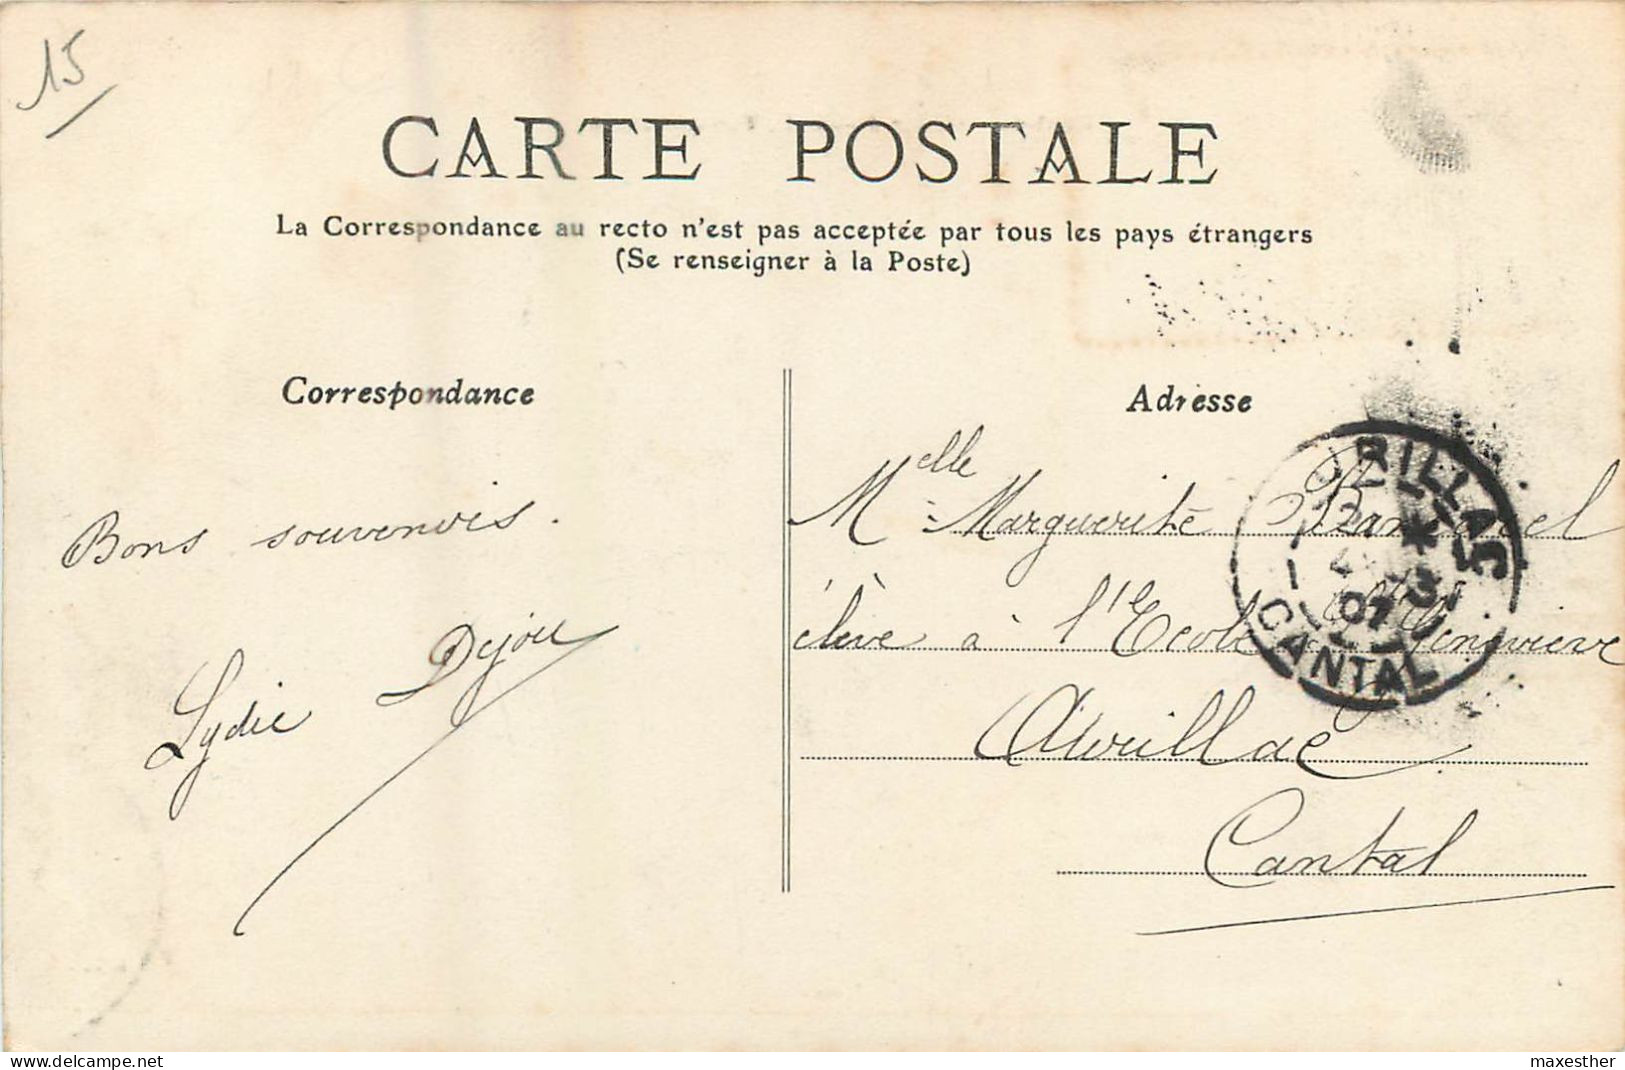 15
CARTE POSTALE
La Correspondance au recto n'est pas acceptée par tous les pays étrangers
(Se renseigner à la Poste)
Correspondance
Bons souvenirs.
Lydie Dejou
Adresse
Melle Marguerite
élève à l'Ecole Ste Geneviève
Aurillac
Cantal
URILLAC
07
CANTAL
delcampe.net
maxesther